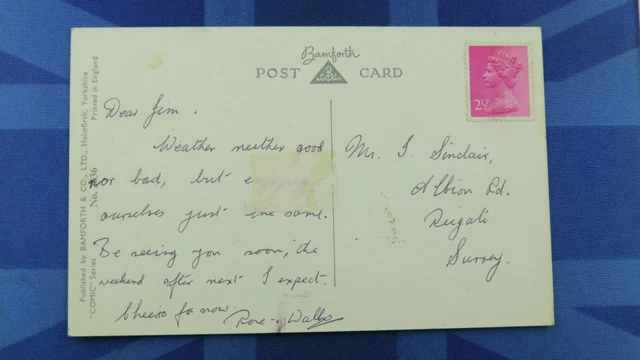 Bamforth
POST CARD
Dear Jim,
Weather neither good
nor bad, but
ourselves just the same.
Be seeing you soon, the
weekend after next I expect.
Cheerio for now
Rose - Wally
Mr. J. Sinclair,
Albion Rd.
Reigate
Surrey.
2½
Published by BAMFORTH & CO., LTD., Holmfirth, Yorkshire
"COMIC" Series
Printed in England